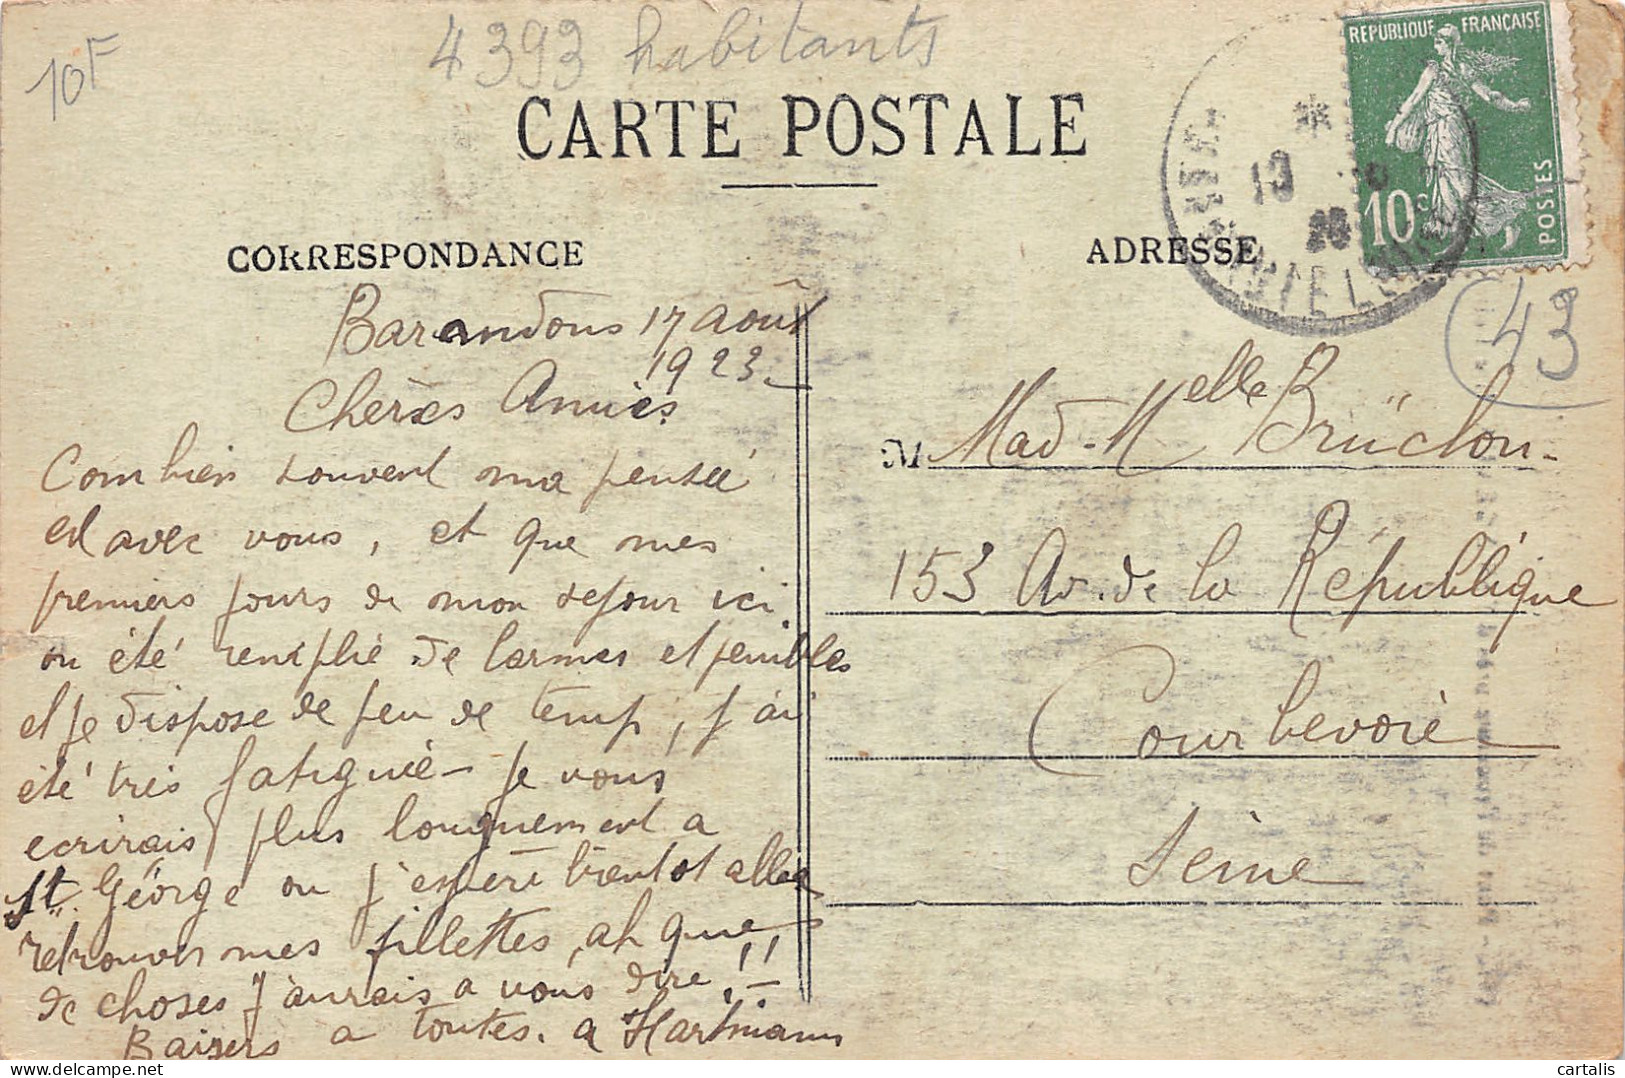 10F
4393 habitants
CARTE POSTALE
REPUBLIQUE FRANÇAISE
10c
POSTES
13
CORRESPONDANCE
ADRESSE
43
Barandons 17 août
1923
Chères Amies
Combien souvent ma pensée
est avec vous, et que mes
premiers jours de mon sejour ici
on été remplie de larmes et penibles
et je dispose de peu de temp, j'ai
été très fatiguée - je vous
ecrirais plus longuement a
St. Géorge ou j'espere bientot allea
retrouver mes fillettes, ah que
de choses j'aurais a vous dire!!
Baisers a toutes. a Hartmann
M Mad - Melle Brüchon -
153 Av. de la République
Courbevoie
Seine
cartalis